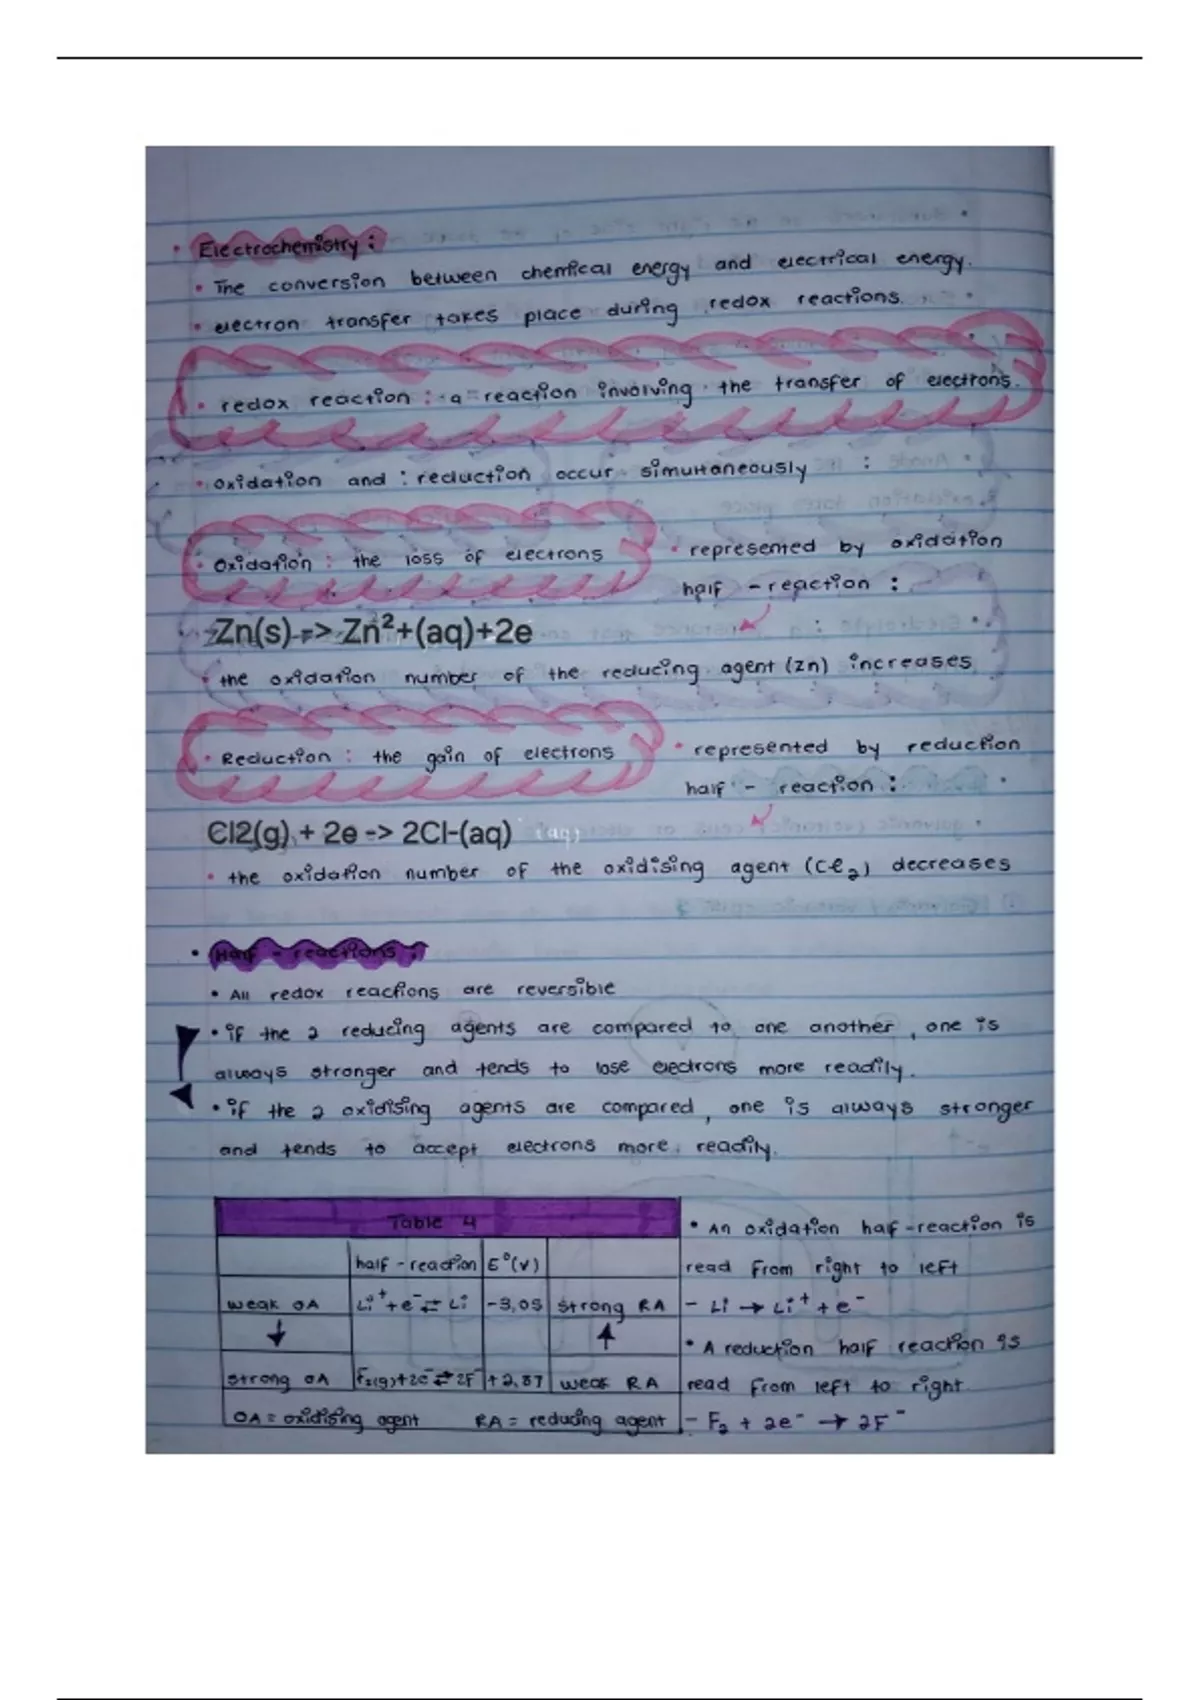 Electrochemistry :
• The conversion between chemical energy and electrical energy.
• electron transfer takes place during redox reactions.
• redox reaction : a reaction involving the transfer of electrons.
• oxidation and reduction occur simultaneously :
• Oxidation : the loss of electrons
• represented by oxidation
half - reaction :
Zn(s) -> Zn²+(aq)+2e
• the oxidation number of the reducing agent (Zn) increases
• Reduction : the gain of electrons
• represented by reduction
half - reaction :
Cl2(g) + 2e -> 2Cl-(aq) (aq)
• the oxidation number of the oxidising agent (Cl₂) decreases
• Half - reactions :
• All redox reactions are reversible
• if the 2 reducing agents are compared to one another, one is
always stronger and tends to lose electrons more readily.
• if the 2 oxidising agents are compared, one is always stronger
and tends to accept electrons more readily.
Table 4
half - reaction E°(V)
weak OA Li⁺ + e⁻ ⇌ Li -3,05 strong RA
↓ ↑
strong OA F₂(g) + 2e⁻ ⇌ 2F⁻ +2,87 weak RA
OA = oxidising agent RA = reducing agent
• An oxidation half-reaction is
read from right to left
- Li → Li⁺ + e⁻
• A reduction half reaction is
read from left to right
- F₂ + 2e⁻ → 2F⁻